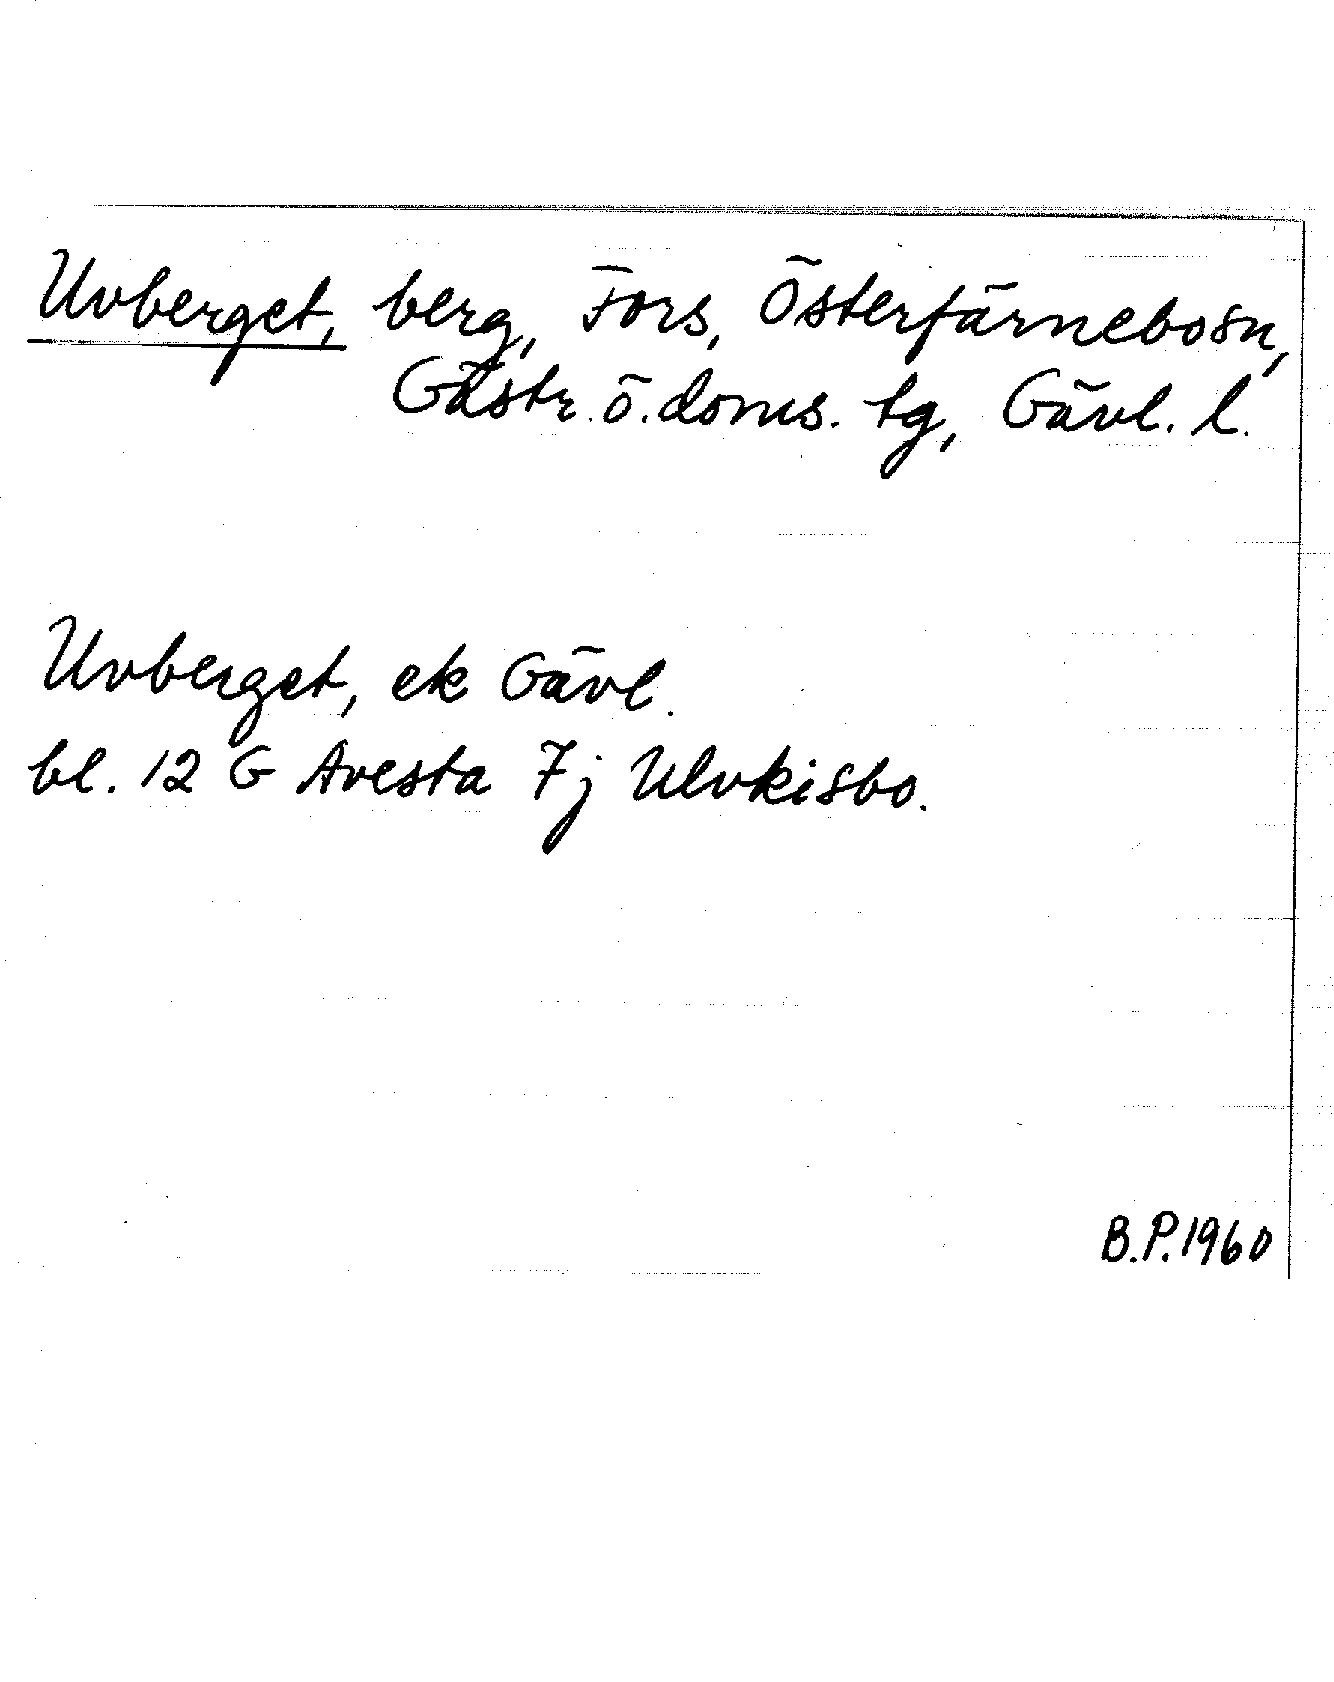 Uvberget, berg, Fors, Österfärnebo sn,
Gästr. ö. doms. tg, Gävl. l.
Uvberget, ek Gävl.
bl. 12 G Avesta 7j Ulvkisbo.
B.P. 1960